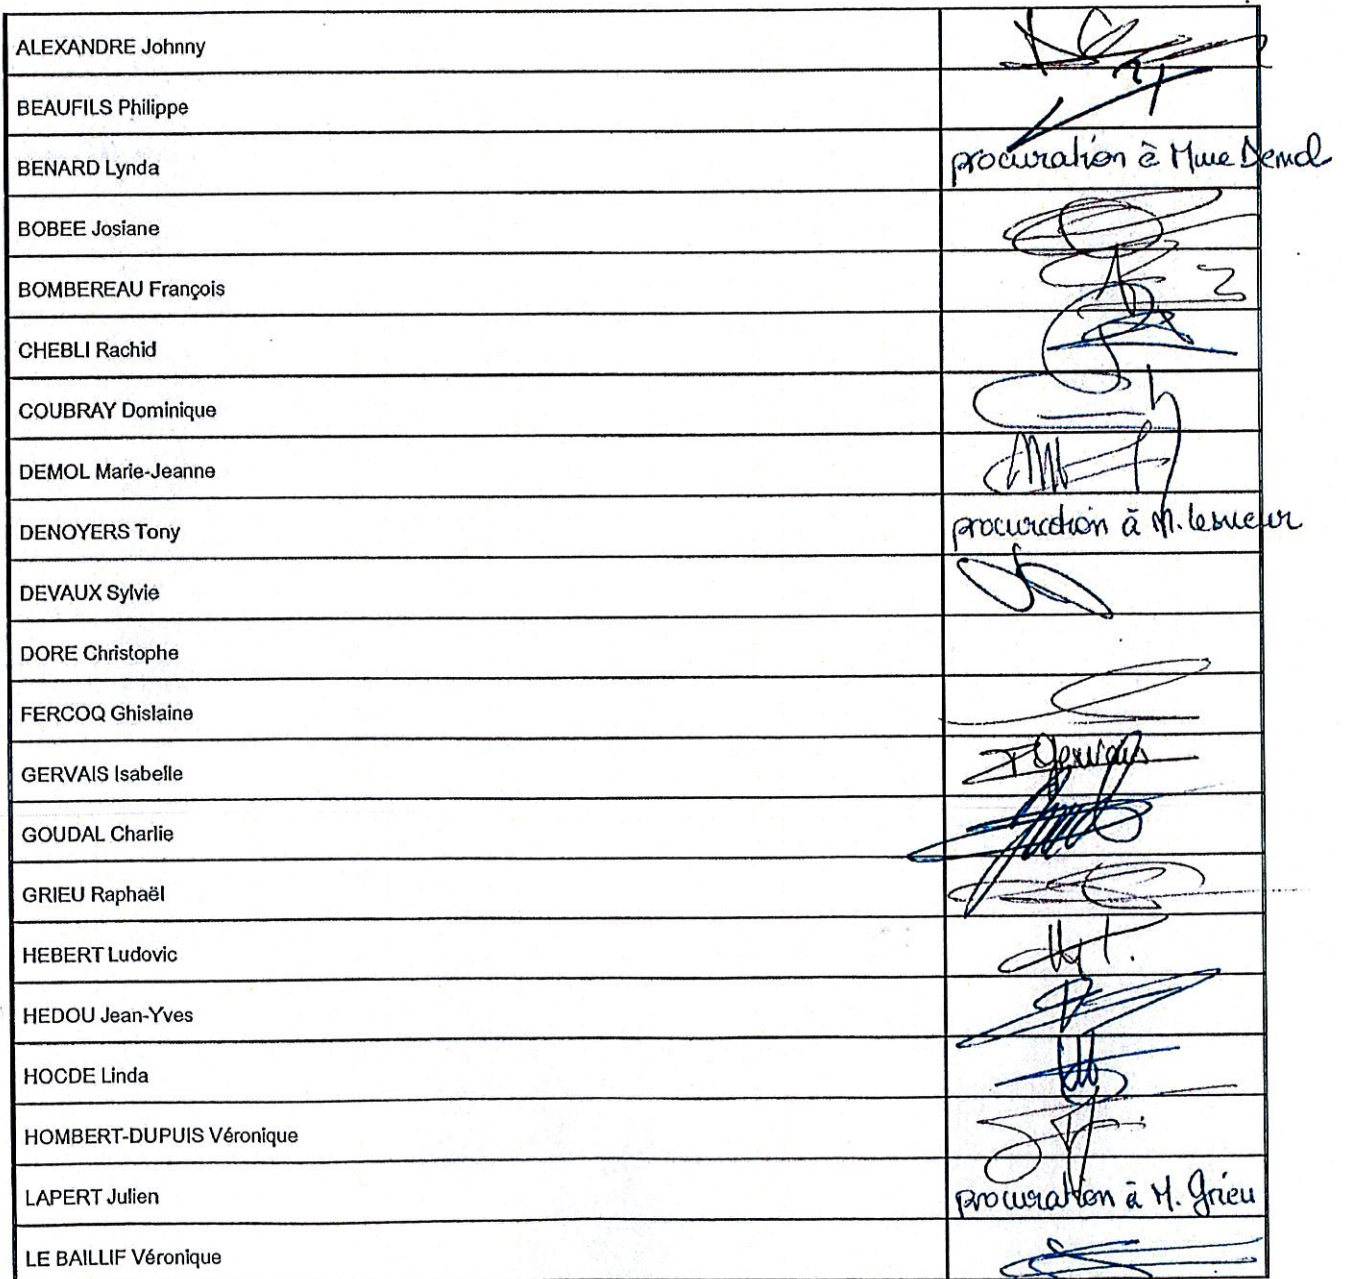 ALEXANDRE Johnny
BEAUFILS Philippe
BENARD Lynda procuration à Mme Demol
BOBEE Josiane
BOMBEREAU François
CHEBLI Rachid
COUBRAY Dominique
DEMOL Marie-Jeanne
DENOYERS Tony procuration à M. Lesueur
DEVAUX Sylvie
DORE Christophe
FERCOQ Ghislaine
GERVAIS Isabelle Gervais
GOUDAL Charlie
GRIEU Raphaël
HEBERT Ludovic
HEDOU Jean-Yves
HOCDE Linda
HOMBERT-DUPUIS Véronique
LAPERT Julien procuration à M. Grieu
LE BAILLIF Véronique